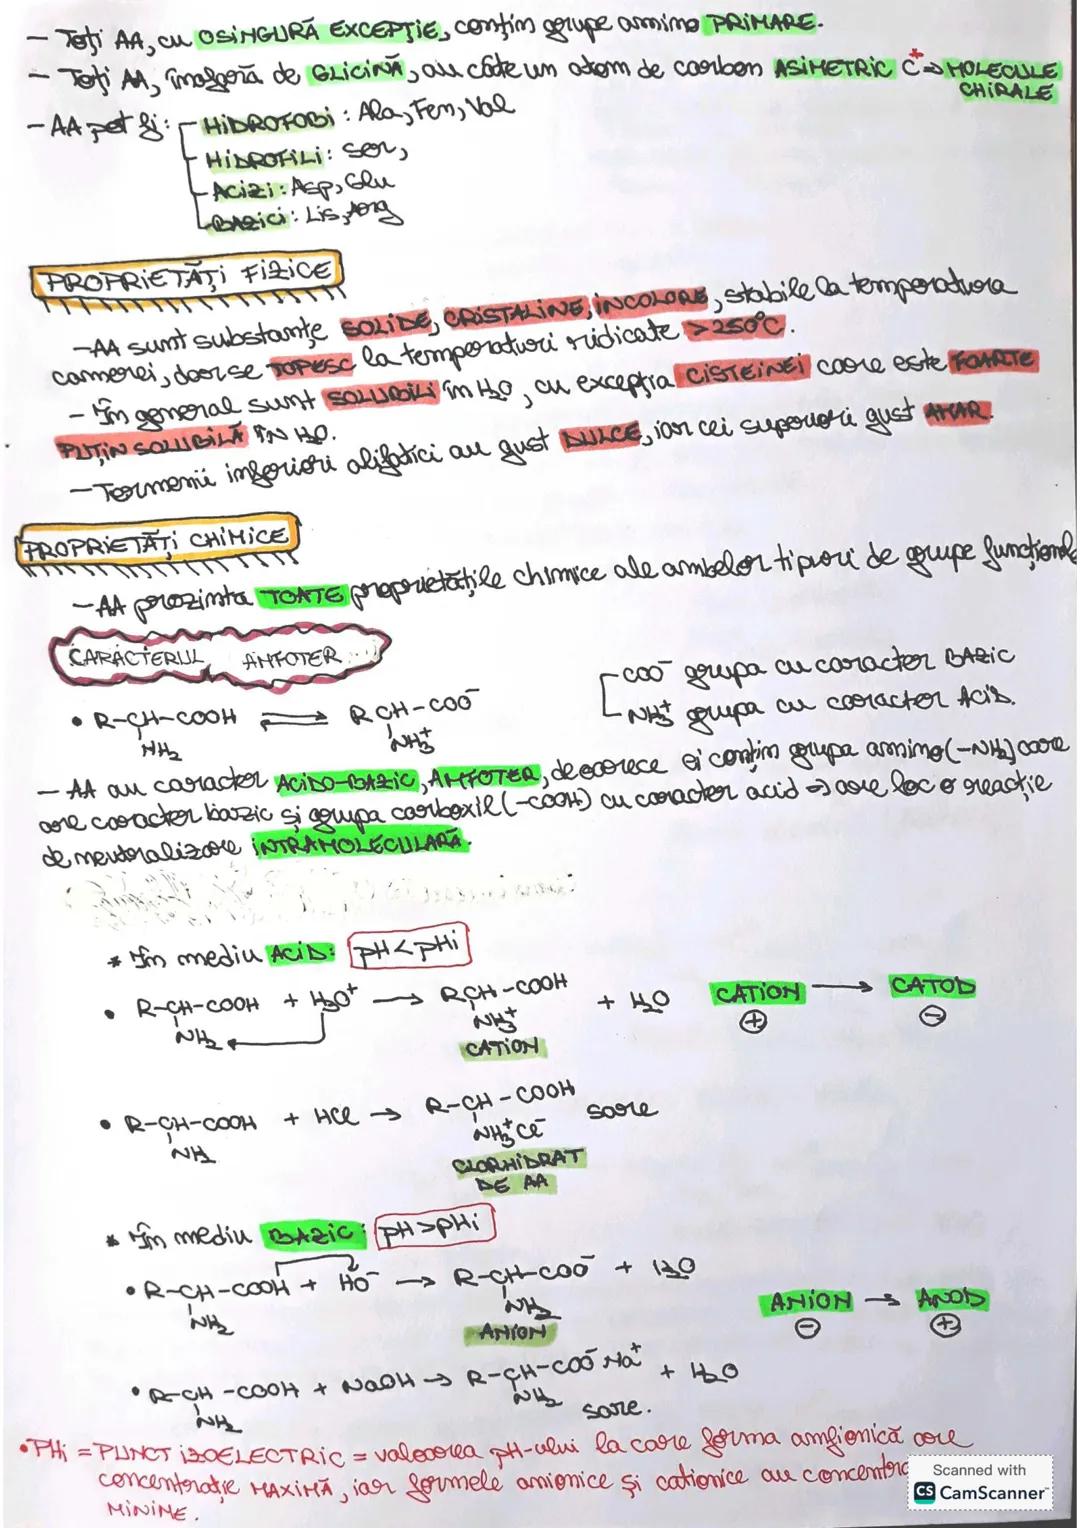 - Toți AA, cu O SINGURĂ EXCEPȚIE, conțin grupe amino PRIMARE.
- Toți AA, în afară de GLICINĂ, au câte un atom de carbon ASIMETRIC C* => MOLECULE
CHIRALE
- AA pot fi: HIDROFOBI: Ala, Fen, Val
HIDROFILI: Ser,
ACIZI: Asp, Glu
BAZICI: Lis, Arg
PROPRIETĂȚI FIZICE
- AA sunt substanțe SOLIDE, CRISTALINE, INCOLORE, stabile la temperatura
camerei, dar se TOPESC la temperaturi ridicate >250°C.
- În general sunt SOLUBILI în H2O, cu excepția CISTEINEI care este FOARTE
PUȚIN SOLUBILĂ ÎN H2O.
- Termenii inferiori alifatici au gust DULCE, iar cei superiori gust AMAR.
PROPRIETĂȚI CHIMICE
- AA prezintă TOATE proprietățile chimice ale ambelor tipuri de grupe funcționale
CARACTERUL AMFOTER
• R-CH-COOH ⇌ R CH-COO⁻
NH2 NH3⁺
COO⁻ grupa cu caracter BAZIC
NH3⁺ grupa cu caracter ACID.
- AA au caracter ACIDO-BAZIC, AMFOTER, deoarece ei conțin grupa amino (-NH2) care
are caracter bazic și grupa carboxil (-COOH) cu caracter acid => are loc o reacție
de neutralizare INTRAMOLECULARĂ.
* În mediu ACID: pH<pHi
• R-CH-COOH + H3O⁺ → R CH-COOH + H2O CATION → CATOD
NH2 NH3⁺ ⊕ ⊖
CATION
• R-CH-COOH + HCl → R-CH-COOH sare
NH2 NH3⁺Cl⁻
CLORHIDRAT
DE AA
* În mediu BAZIC: pH>pHi
• R-CH-COOH + HO⁻ → R-CH-COO⁻ + H2O
NH2 NH2 ANION → ANOD
ANION ⊖ ⊕
• R-CH-COOH + NaOH → R-CH-COO⁻Na⁺ + H2O
NH2 NH2 sare.
• PHi = PUNCT IZOELECTRIC = valoarea pH-ului la care forma amfionică are
concentrație MAXIMĂ, iar formele anionice și cationice au concentra
MINIME.
Scanned with
CS CamScanner